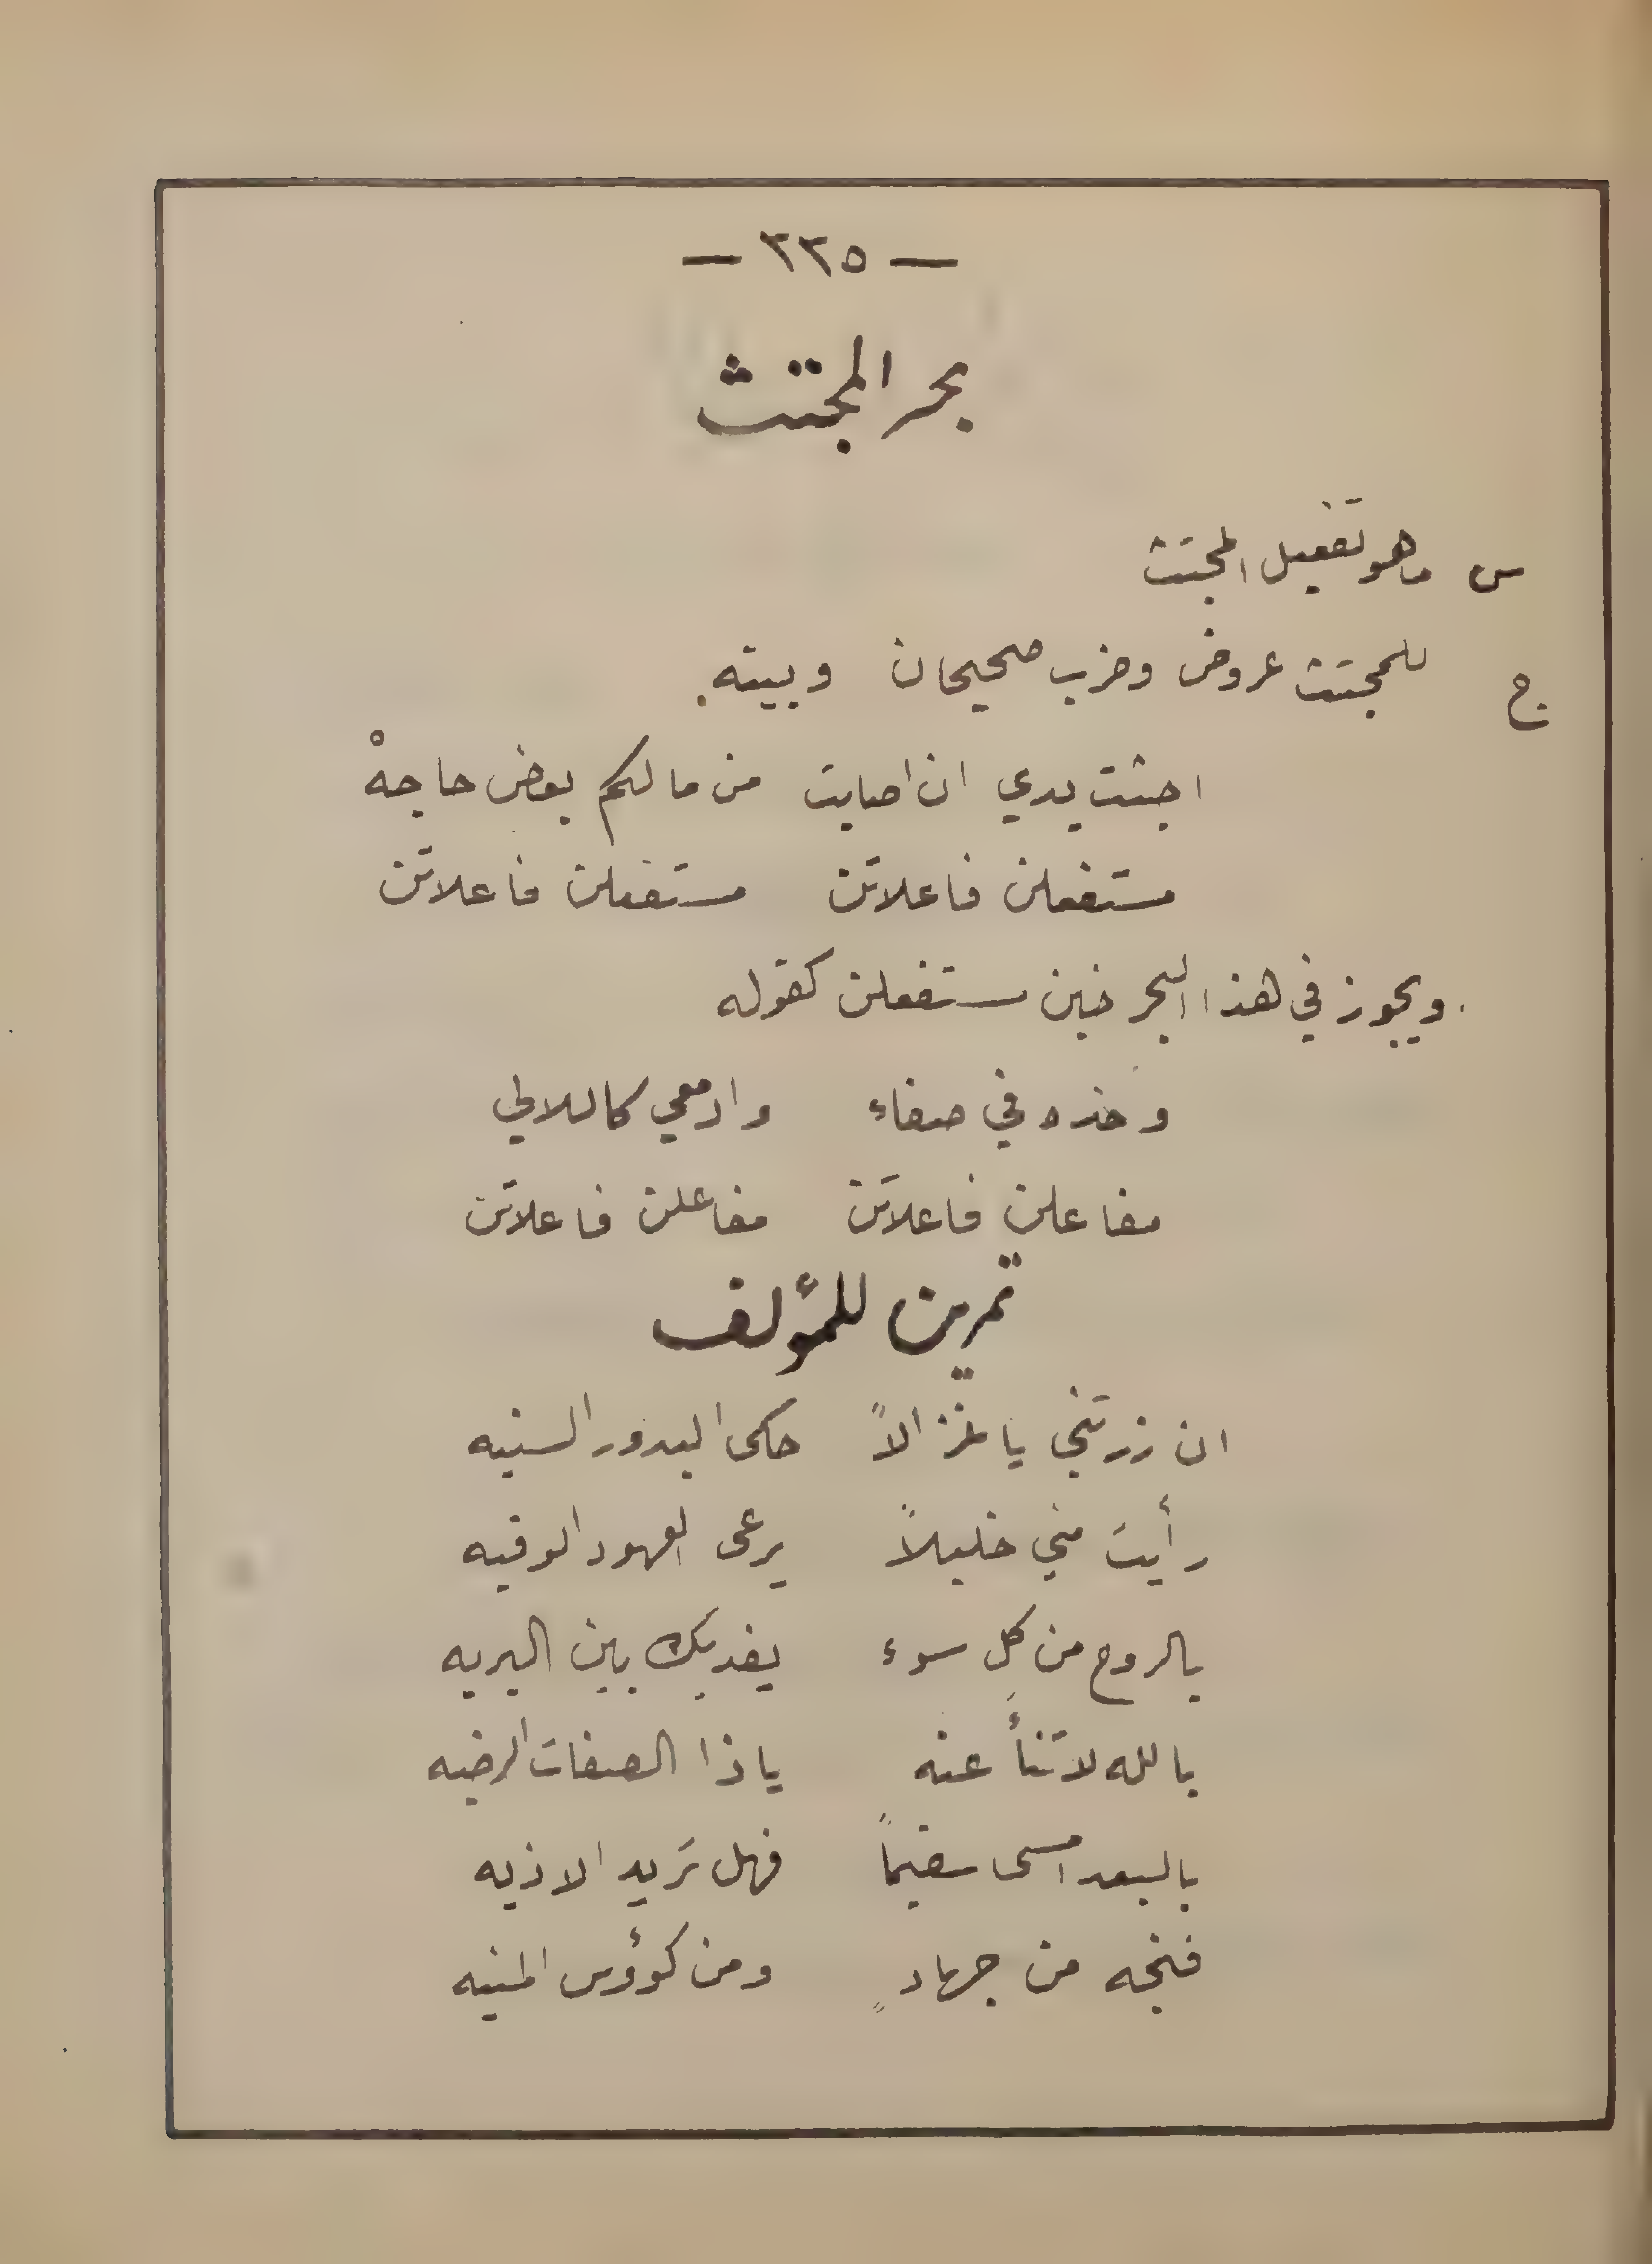 — ٢٢٥ —
بحر المجتث
س ماهو تفعيل المجتث
ج للمجتث عروض وضرب صحيحان وبيته
اجتثت يدي ان اصابت من مالكم بعض حاجهْ
مستفعلن فاعلاتن مستفعلن فاعلاتن
ويجوز في هذا البحر خبن مستفعلن كقوله
وخده في صفاء وادمعي كاللالي
مفاعلن فاعلاتن مفاعلن فاعلاتن
تمرين للمؤلف
ان زرتني يا غزالاً حكى البدور السنيه
رأيت مني خليلاً يرعى العهود الوفيه
بالروح من كل سوء يفديك بين البريه
بالله لا تنأَ عنه يا ذا الصفات الرضيه
بالبعد امسى سقيماً فهل تريد الاذيه
فنجه من جهادٍ ومن كؤوس المنيه